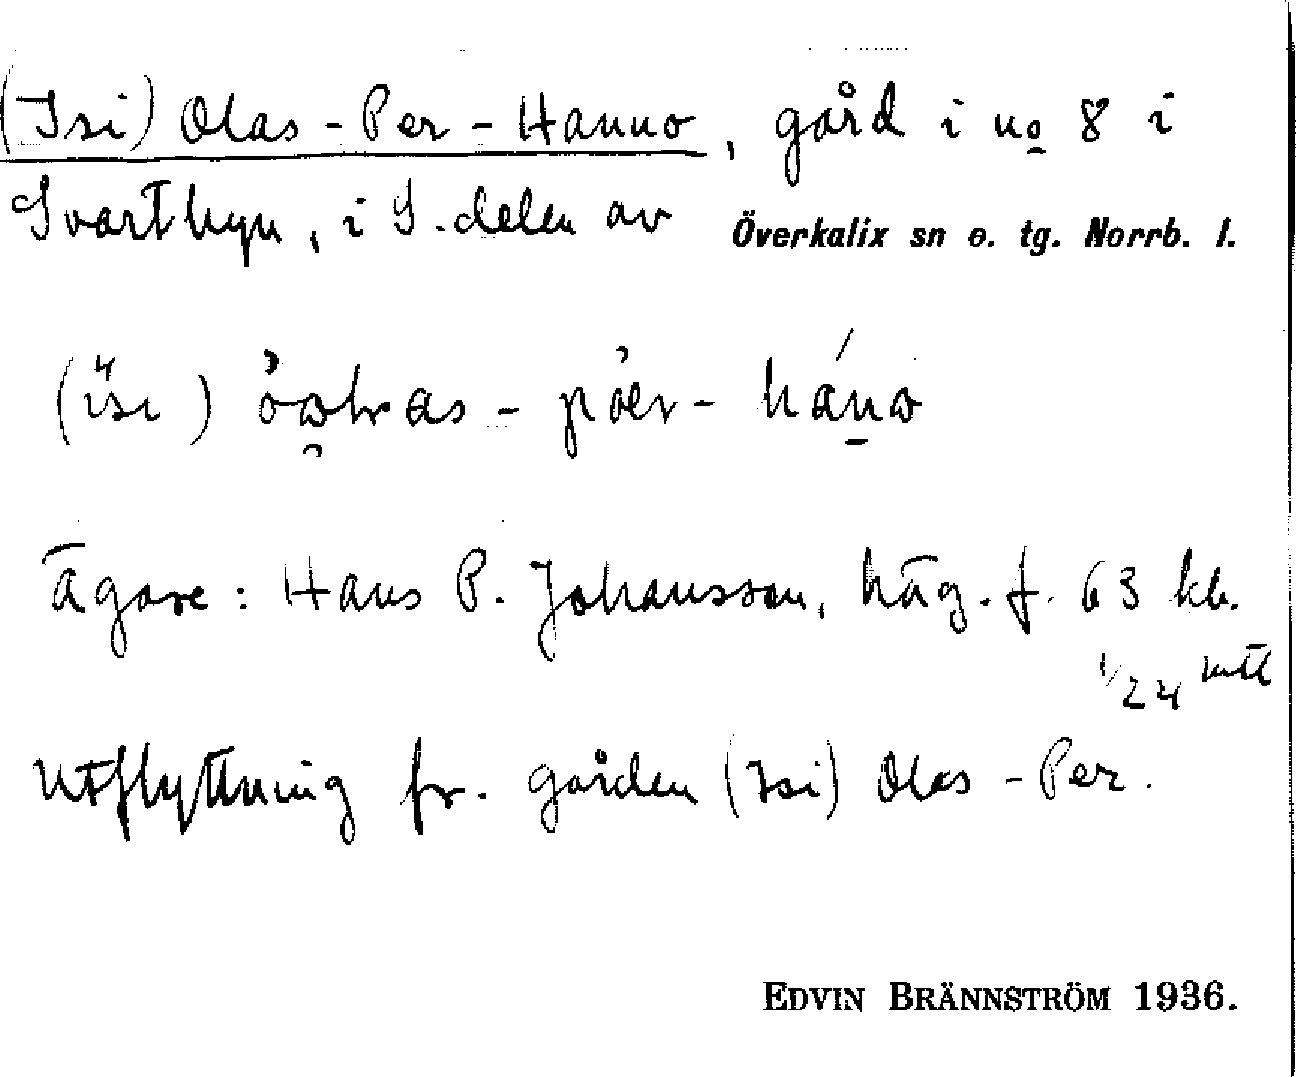 (Isi) Olas-Per-Hanno, gård i no 8 i
Svartbyn, i S. delen av Överkalix sn o. tg. Norrb. l.
Ägare: Hans P. Johansson, häg. f. 63 kb.
1/24 mtl
Utflyttning fr. gården (Isi) Olas-Per.
EDVIN BRÄNNSTRÖM 1936.